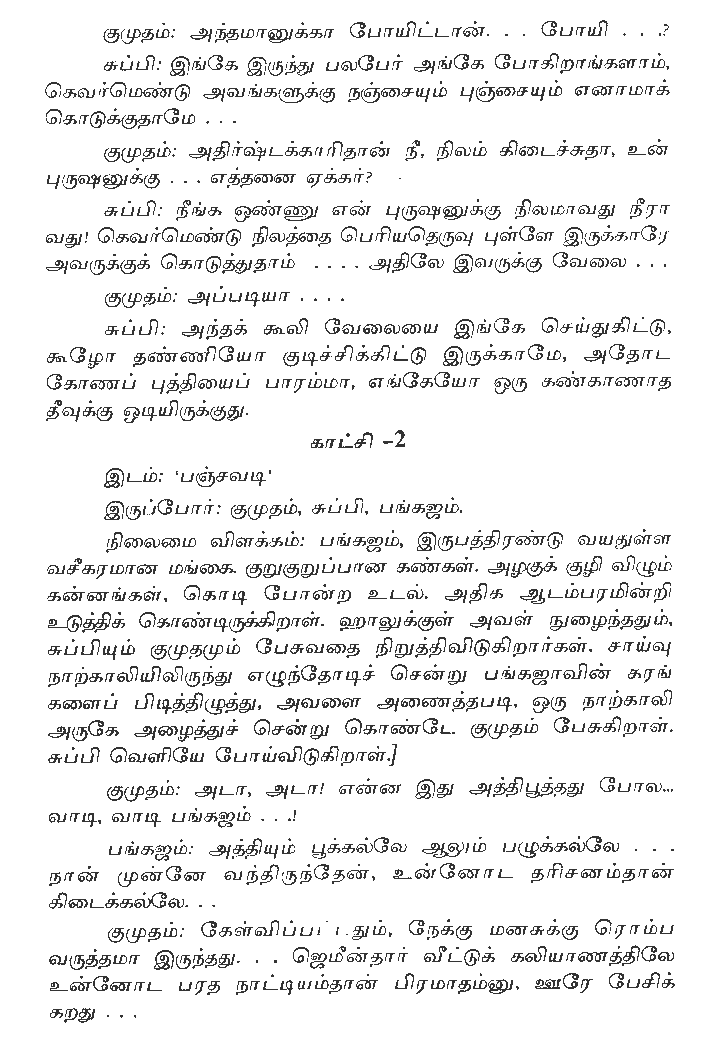 குமுதம்: அந்தமானுக்கா போயிட்டான். . . போயி . . .?
சுப்பி: இங்கே இருந்து பலபேர் அங்கே போகிறாங்களாம்,
கெவர்மெண்டு அவங்களுக்கு நஞ்சையும் புஞ்சையும் எனாமாக்
கொடுக்குதாமே . . .
குமுதம்: அதிர்ஷ்டக்காரிதான் நீ, நிலம் கிடைச்சுதா, உன்
புருஷனுக்கு . . . எத்தனை ஏக்கர்?
சுப்பி: நீங்க ஒண்ணு என் புருஷனுக்கு நிலமாவது நீரா
வது! கெவர்மெண்டு நிலத்தை பெரியதெருவு புள்ளே இருக்காரே
அவருக்குக் கொடுத்துதாம் . . . . அதிலே இவருக்கு வேலை . . .
குமுதம்: அப்படியா . . . .
சுப்பி: அந்தக் கூலி வேலையை இங்கே செய்துகிட்டு,
கூழோ தண்ணியோ குடிச்சிக்கிட்டு இருக்காமே, அதோட
கோணப் புத்தியைப் பாரம்மா, எங்கேயோ ஒரு கண்காணாத
தீவுக்கு ஒடியிருக்குது.
காட்சி -2
இடம்: 'பஞ்சவடி'
இருப்போர்: குமுதம், சுப்பி, பங்கஜம்.
நிலைமை விளக்கம்: பங்கஜம், இருபத்திரண்டு வயதுள்ள
வசீகரமான மங்கை. குறுகுறுப்பான கண்கள். அழகுக் குழி விழும்
கன்னங்கள், கொடி போன்ற உடல். அதிக ஆடம்பரமின்றி
உடுத்திக் கொண்டிருக்கிறாள். ஹாலுக்குள் அவள் நுழைந்ததும்,
சுப்பியும் குமுதமும் பேசுவதை நிறுத்திவிடுகிறார்கள். சாய்வு
நாற்காலியிலிருந்து எழுந்தோடிச் சென்று பங்கஜாவின் கரங்
களைப் பிடித்திழுத்து, அவளை அணைத்தபடி, ஒரு நாற்காலி
அருகே அழைத்துச் சென்று கொண்டே. குமுதம் பேசுகிறாள்.
சுப்பி வெளியே போய்விடுகிறாள்.]
குமுதம்: அடா, அடா! என்ன இது அத்திபூத்தது போல...
வாடி, வாடி பங்கஜம் . . .!
பங்கஜம்: அத்தியும் பூக்கல்லே ஆலும் பழுக்கல்லே . . .
நான் முன்னே வந்திருந்தேன், உன்னோட தரிசனம்தான்
கிடைக்கல்லே. . .
குமுதம்: கேள்விப்பட்டதும், நேக்கு மனசுக்கு ரொம்ப
வருத்தமா இருந்தது. . . ஜெமீன்தார் வீட்டுக் கலியாணத்திலே
உன்னோட பரத நாட்டியம்தான் பிரமாதம்னு, ஊரே பேசிக்
கறது . . .